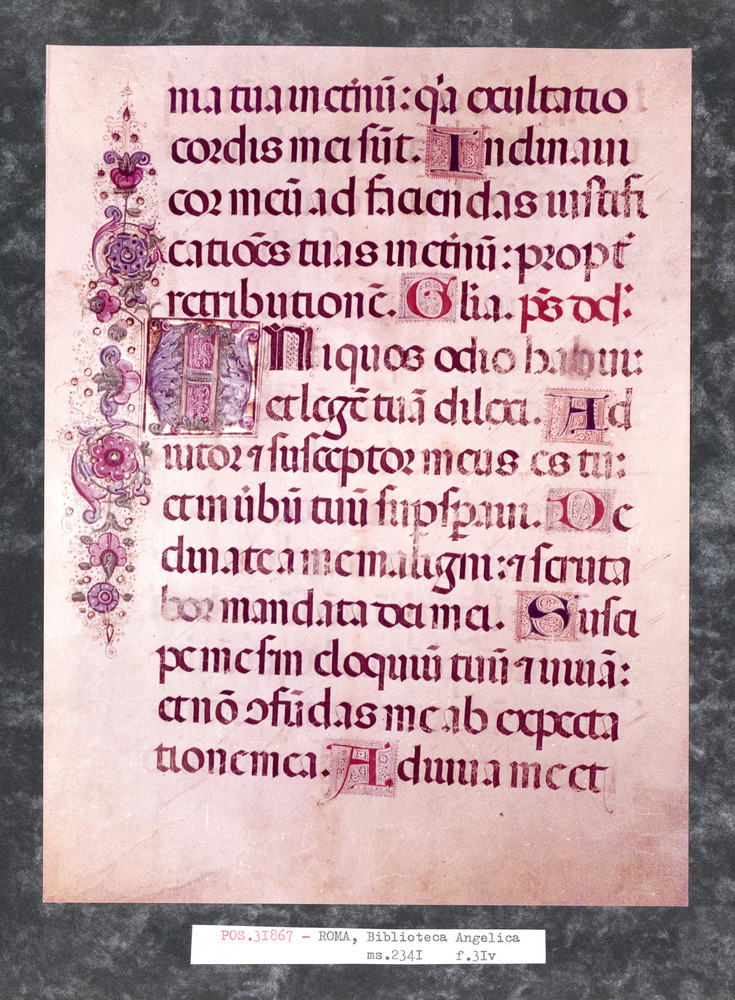 ma tua in et̄nū: q̄a exultatio
cordis mei sūt. Inclinaui
cor meū ad faciendas iustifi
catiōēs tuas in et̄nū: propt̄
retributionē. Glia. p̄s dd̄:
INiquos odio habui:
et legē tuā dilexi. Ad
iutor ⁊ susceptor meus es tu:
et in ūbū tuū suꝑsꝑaui. De
clinate a me maligni: ⁊ scruta
bor mandata dei mei. Susci
pe me sm̄ eloquiū tuū ⁊ uiuā:
et nō ↄfūdas me ab expecta
tione mea. Adiuua me et
POS.31867 - ROMA, Biblioteca Angelica
ms.2341 f.31v